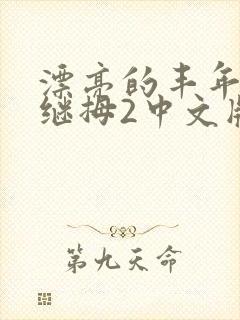 漂亮的丰年
继拇2中文版
第九天命